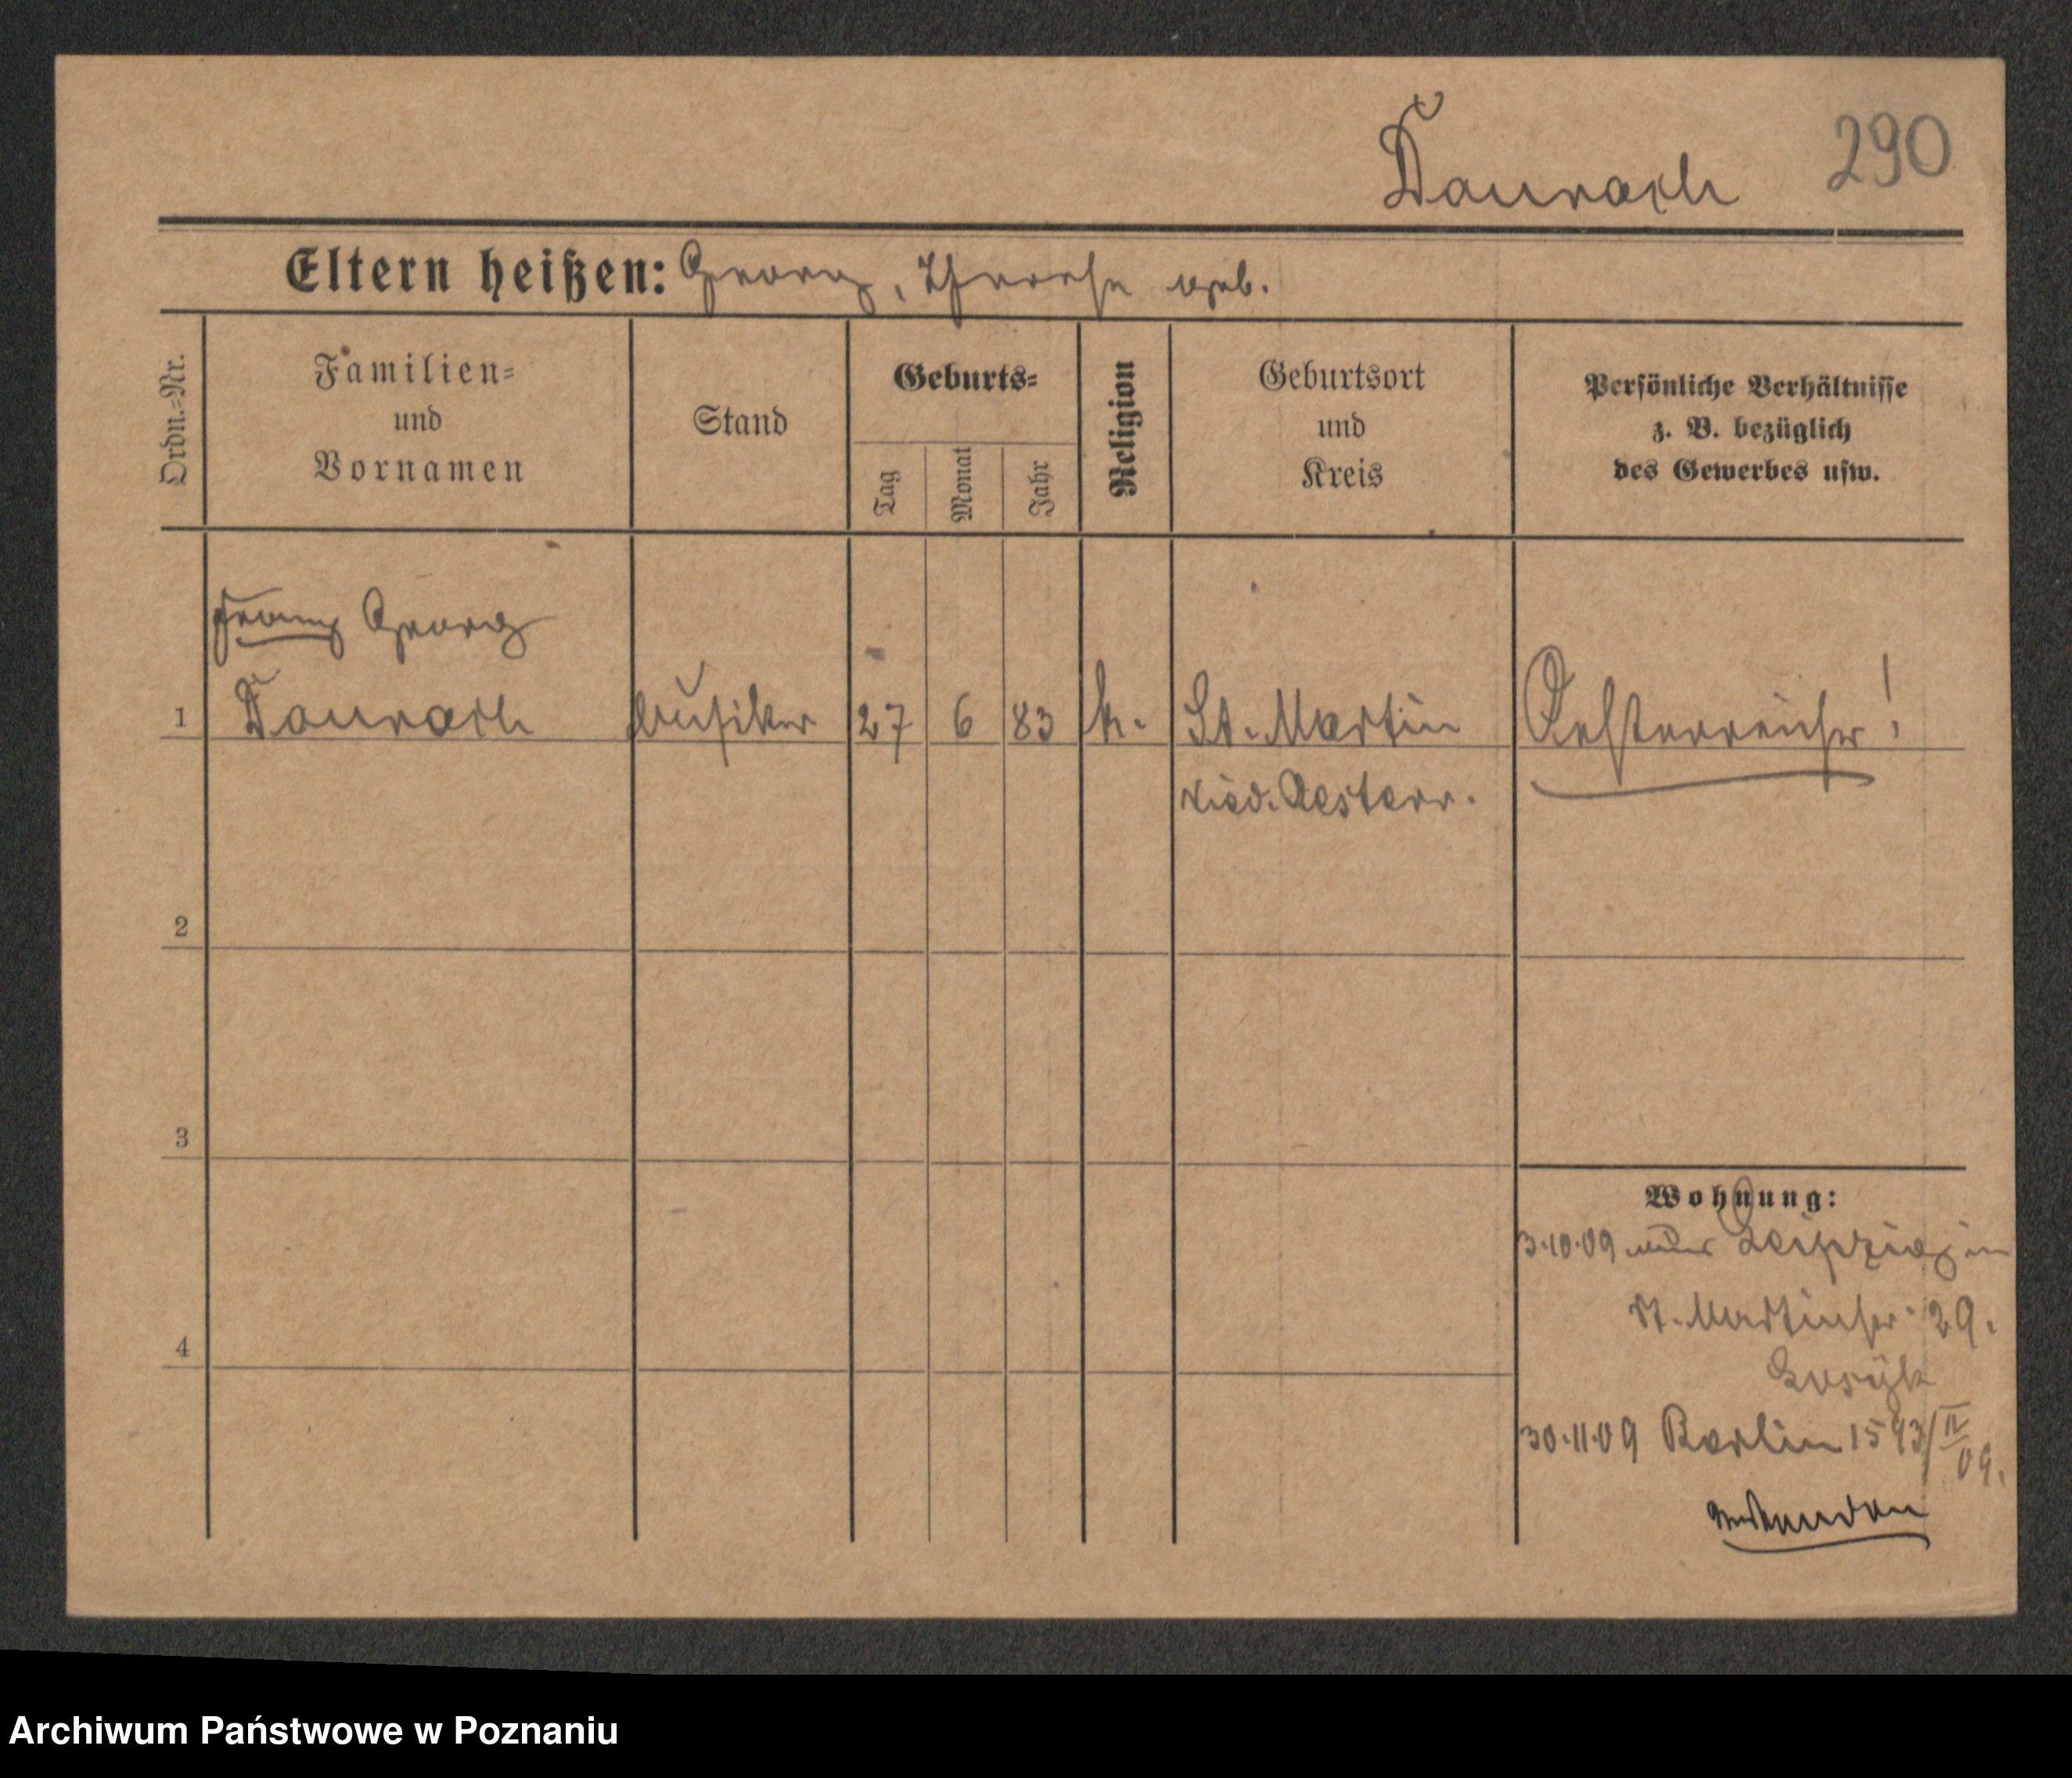 Daurach 290
Eltern heißen: Georg, Therese geb.
Ordn.=Nr.
Familien=
und
Vornamen
Stand
Geburts=
Tag
Monat
Jahr
Religion
Geburtsort
und
Kreis
Persönliche Verhältnisse
z. B. bezüglich
des Gewerbes usw.
Franz Georg
1 Daurach Musiker 27 6 83 k. St. Martin Oesterreicher!
Nied. Oesterr.
2
3
Wohnung:
3.10.09 Leipzig in
St. Martinstr. 29.
4
30.11.09 Berlin 1543/II
09.
Archiwum Państwowe w Poznaniu